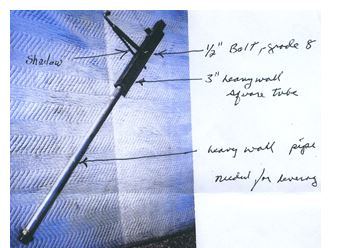 1/2" Bolt, grade 8
Shadow
3" heavy wall
square tube
heavy wall pipe
needed for levering